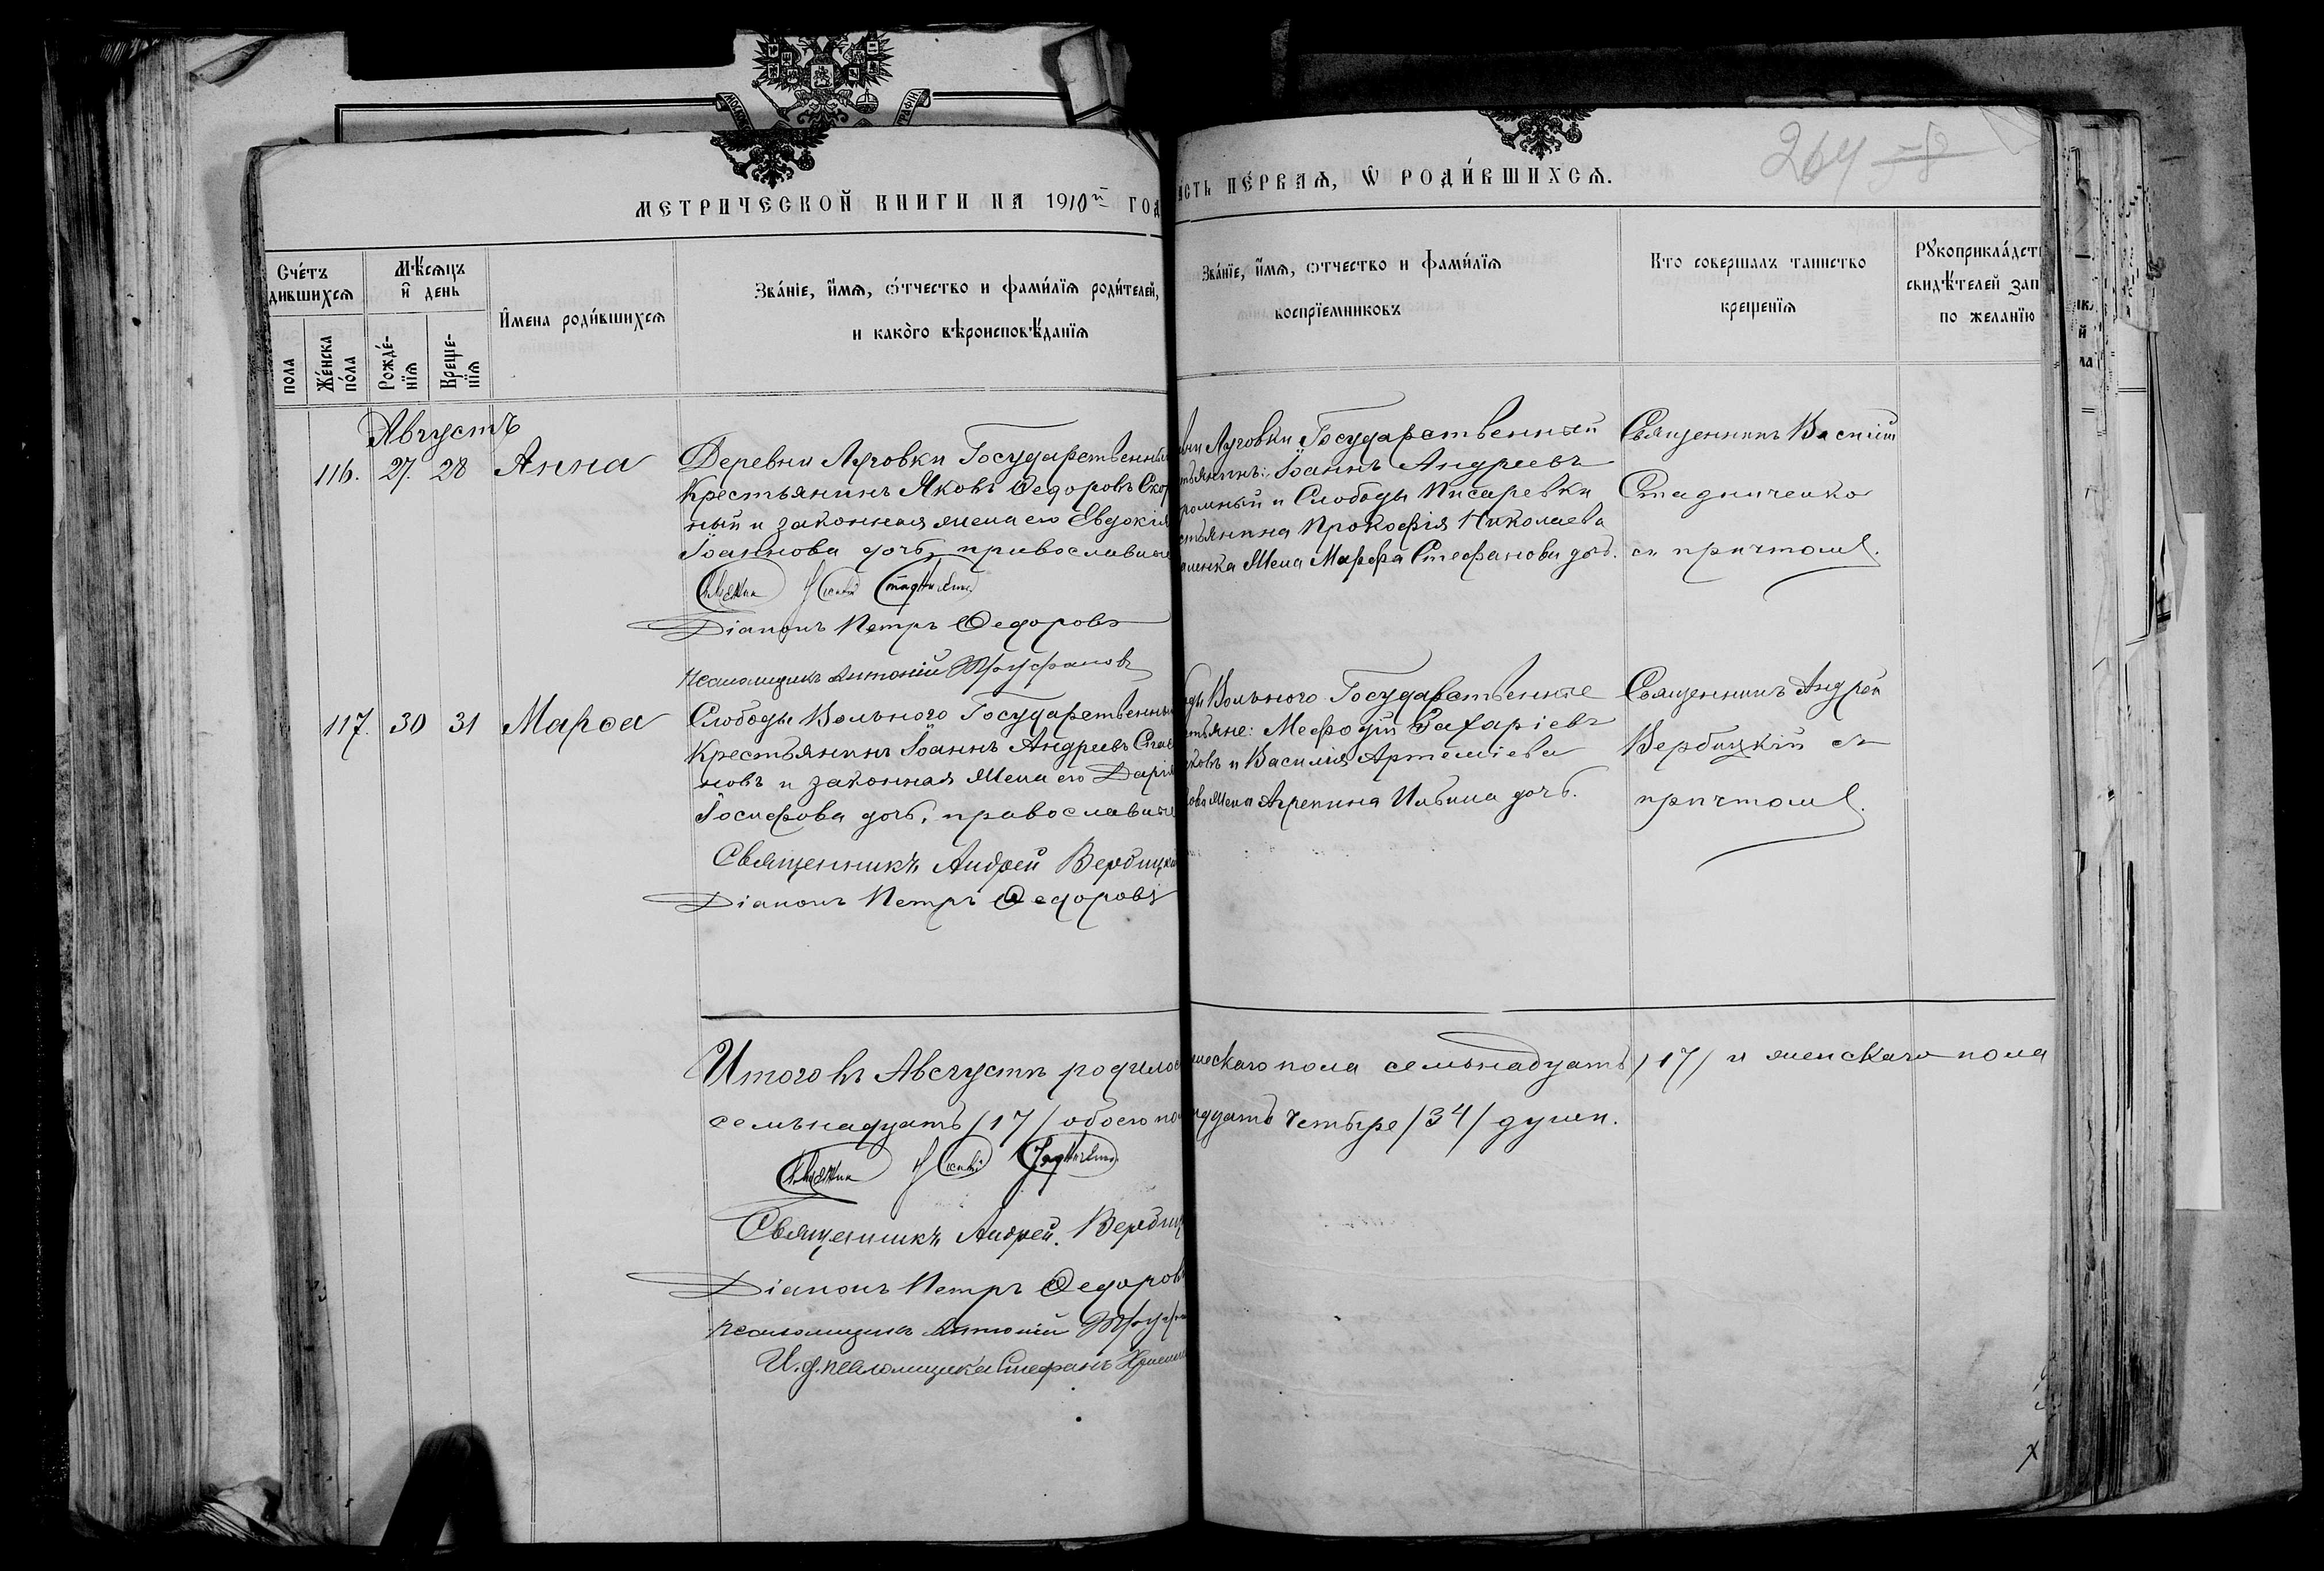 МЕТРИЧЕСКОЙ КНИГИ НА 1910й ГОД
АСТЬ ПЕ́РВАѦ, Ѡ РОДИ́ВШИХСѦ.
264
Сче́тъ
дившихсѧ
пола
Же́нска по́ла
Мѣ́сѧцъ и҆ день
Рожде́-нїѧ
Креще-нїѧ
И҆мена роди́вшихсѧ
Зва́нїе, и҆́мѧ, ѻ҆́тчество и фами́лїѧ роди́телей,
и како́го вѣроисповѣ́данїѧ
Зва́нїе, и҆́мѧ, ѻтчество и фами́лїѧ
воспрїемниковъ
Кто совершалъ таинство
крещенїѧ
Рꙋкоприкла́дст
свидѣ́телей зап
по желанїю
Августъ
116. 27. 28 Анна
Деревни Луговки Государственны
Крестьянинъ Яковъ Ѳедоровъ Скор
ный и законная жена его Евдокія
Іоаннова дочь, православные
Діаконъ Петръ Ѳедоровъ
Псаломщикъ Антоній
вни Луговки Государственный
тьянинъ: Іоаннъ Андреевъ
ромный и Слободы Писаревки
стьянина Прокофія Николаева
аленка жена Марфа Стефанова дочь.
Священникъ Василій
Стадниченко
съ причтомъ.
117. 30 31 Марѳа
Слободы Вольного Государственны
Крестьянинъ Іоаннъ Андреевъ
новъ и законная жена его Дарія
Іосифова дочь, православные
Священникъ Андрей Вербицкій
Діаконъ Петръ Ѳедоровъ
ды Вольного Государственные
тьяне: Мефодій Захаріевъ
ковъ и Василія Артеміева
ова жена Агрепина Ильина дочь.
Священникъ Андрей
Вербицкій съ
причтомъ.
Итого въ Августѣ родилос
жескаго пола семьнадцать /17/ и женскаго пола
семьнадцать /17/ обоего по
идцать четыре /34/ душъ.
Священникъ Андрей Вербиц
Діаконъ Петръ Ѳедоровъ
Псаломщикъ Антоній
И. д. псаломщика Стефанъ